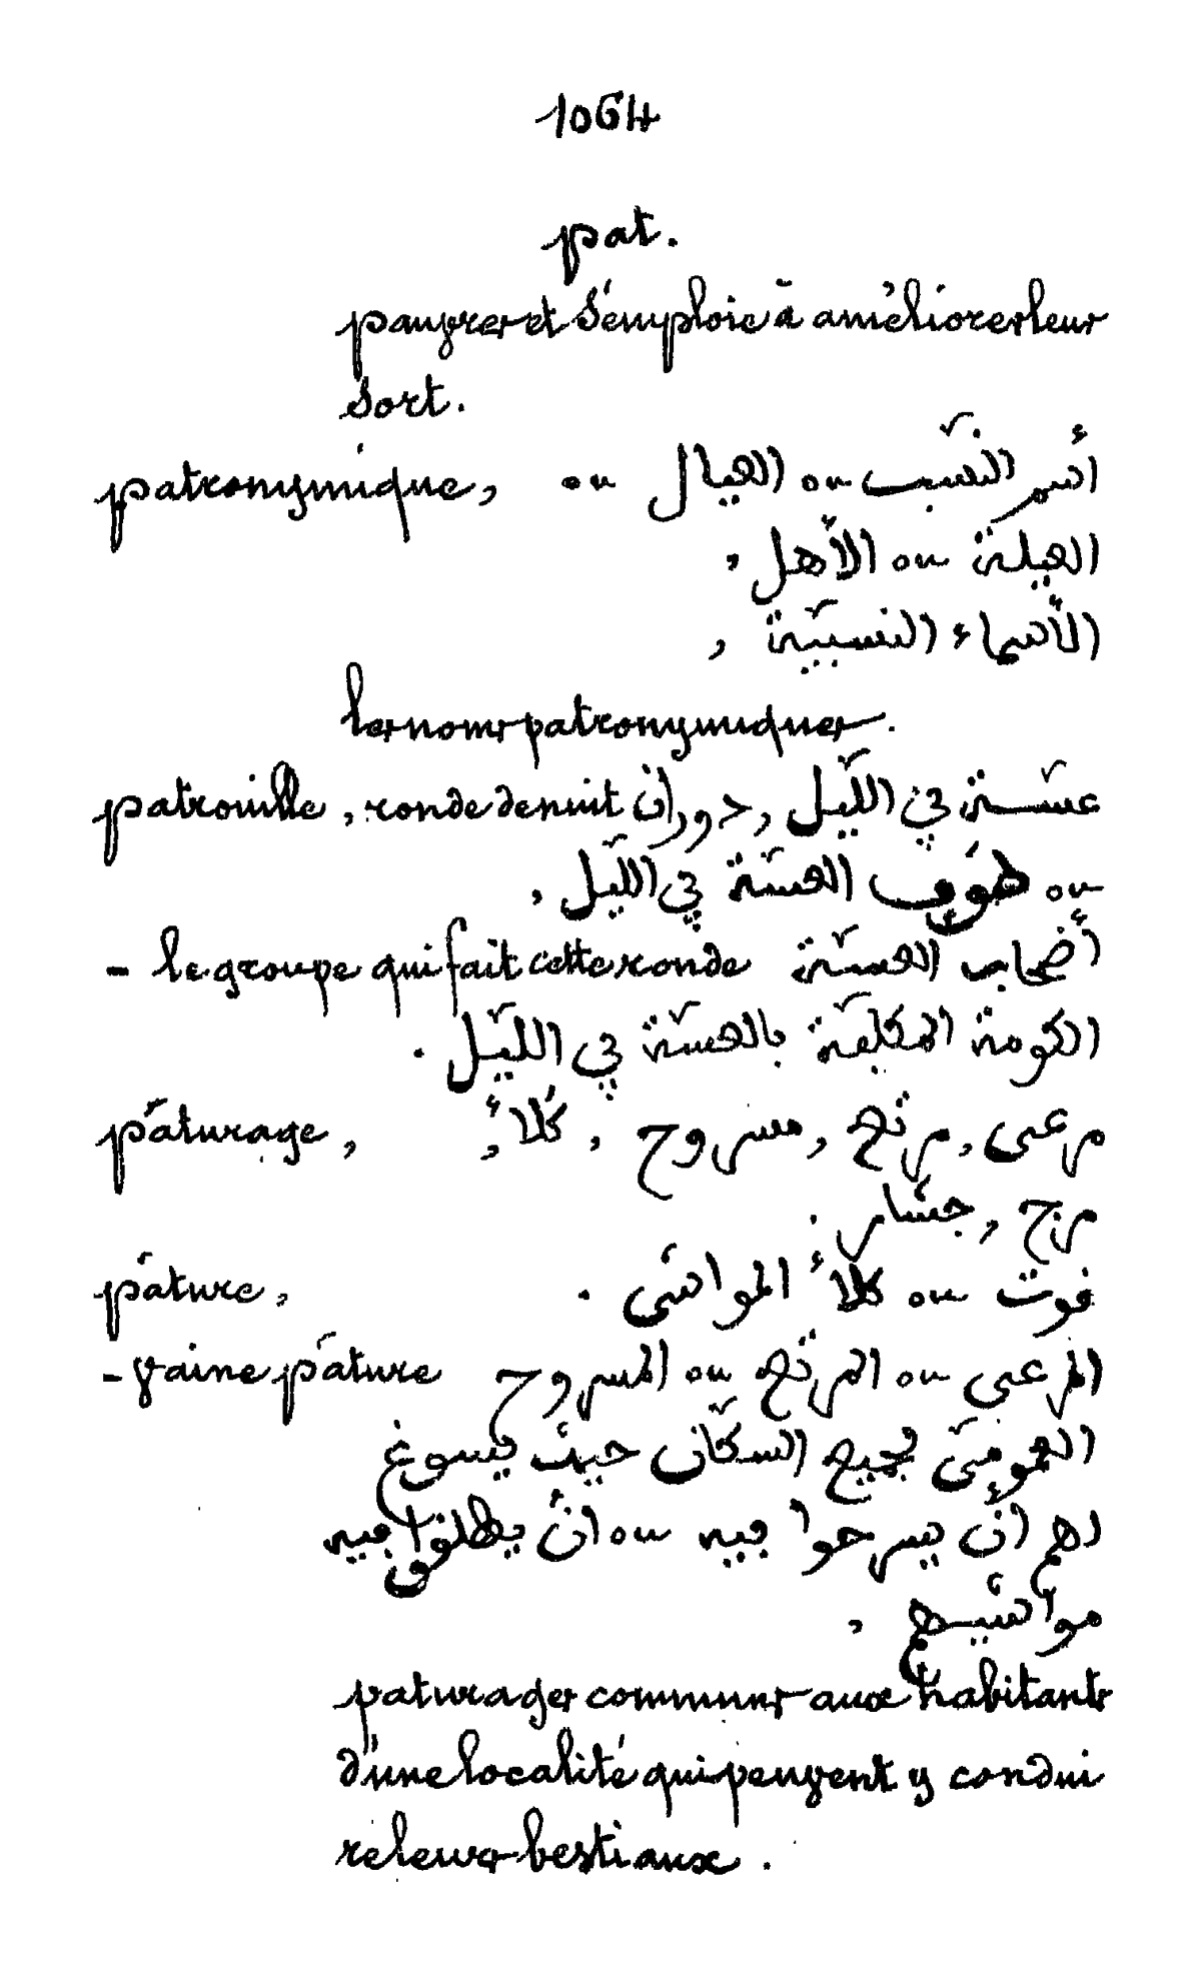 1064
pat.
pauvres et s'emploie à améliorer leur
sort.
patronymique, أسم النّسب ou العيال ou
العيلة ou الأهل,
الأسماء النسبيّة,
les noms patronymiques.
patrouille, ronde de nuit عسّة في اللّيل, دوران
ou طوف العسّة في اللّيل,
- le groupe qui fait cette ronde أصحاب العسّة
الكومة المكلّفة بالعسّة في اللّيل.
pâturage, مرعى, مرتع, مسروح, كلأ,
مرج, جشار.
pâture, قوت ou كلأ المواشي.
- vaine pâture المرعى ou المرتع ou المسروح
العمومي لجميع السكّان حيث يسوغ
لهم أن يسرحوا فيه ou أن يطلقوا فيه
مواشيهم,
paturages communs aux habitants
d'une localité qui peuvent y condui
re leurs bestiaux.